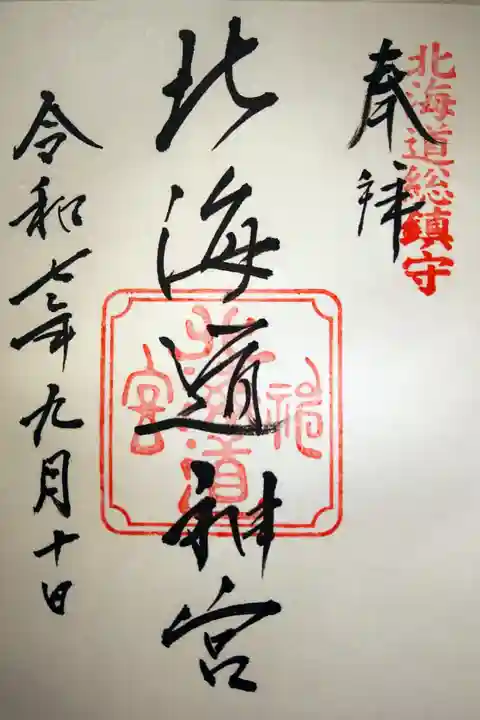 北海道総鎮守
奉拝
北海道神宮
北海道神宮
令和七年九月十日